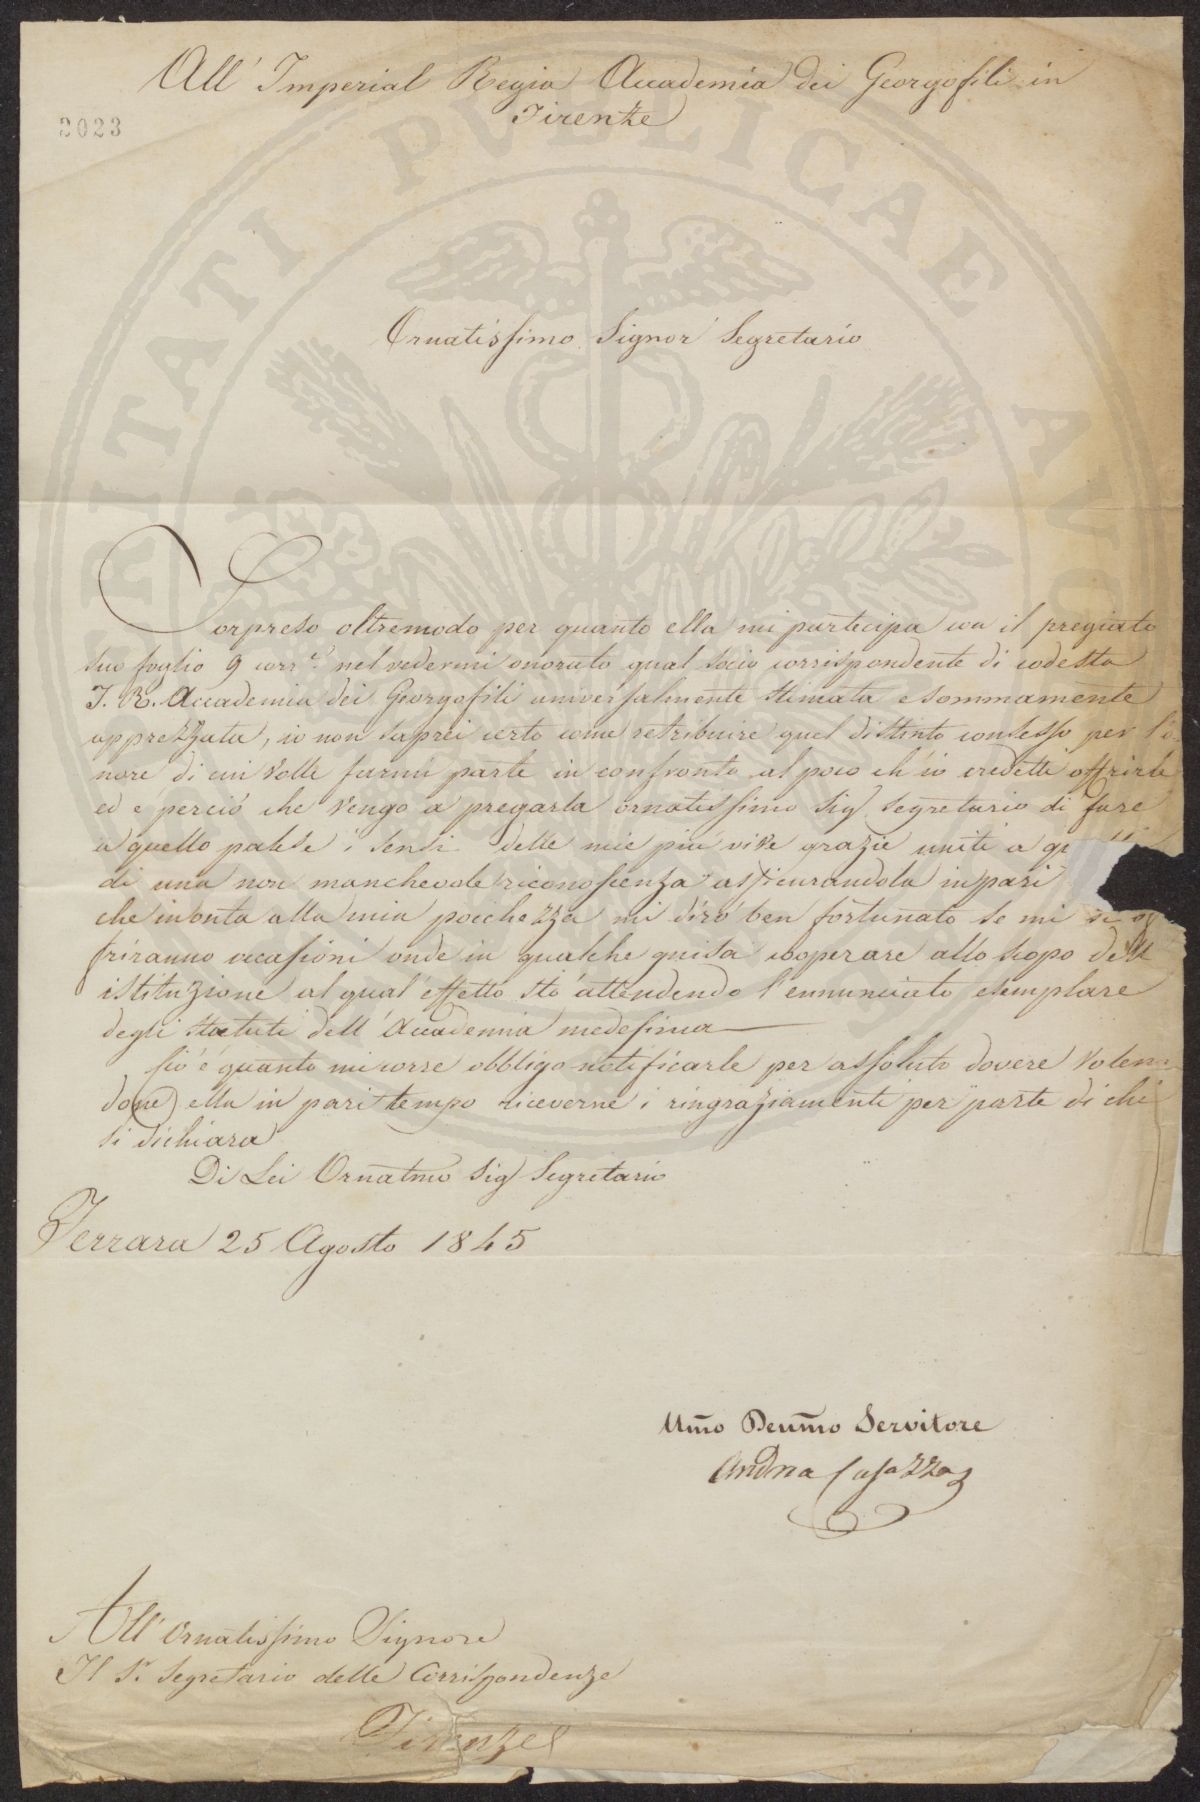 All' Imperial Regia Accademia dei Georgofili in
Firenze
2023
Ornatissimo Signor Segretario
Sorpreso oltremodo per quanto ella mi partecipa con il pregiato
suo foglio 9 corr.e nel vedermi onorato qual socio corrispondente di codesta
I. R. Accademia dei Georgofili universalmente stimata e sommamente
apprezzata, io non saprei certo come retribuire quel distinto consesso per l'o
nore di cui volle farmi parte in confronto al poco ch'io credetti offrirle
ed è perciò che vengo a pregarla ornatissimo Sig. Segretario di fare
a quello palese i sensi delle mie più vive grazie uniti a
di una non manchevole riconoscenza assicurandola in pari
che in onta alla mia pocchezza mi dirò ben fortunato se mi si of
friranno occasioni onde in qualche guisa cooperare allo scopo dell
istituzione al qual'effetto stò attendendo l'ennunciato esemplare
degli statuti dell'Accademia medesima
Ciò è quanto mi corre obbligo notificarle per assoluto dovere volen
done ella in pari tempo riceverne i ringraziamenti per parte di chi
si dichiara
Di Lei Ornatmo Sig Segretario
Ferrara 25 Agosto 1845
Umo Devmo Servitore
Andrea Casazza
All' Ornatissimo Signore
Il Sr. Segretario delle Corrispondenze
Firenze
PUBLICAE